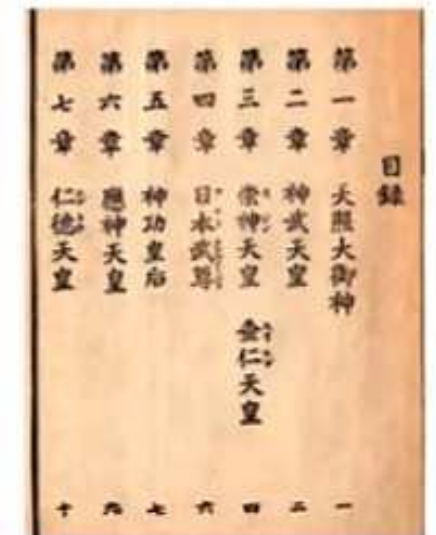 目錄
第一章 天照大御神 一
第二章 神武天皇 二
第三章 崇神天皇 垂仁天皇 四
第四章 日本武尊 六
第五章 神功皇后 七
第六章 應神天皇 九
第七章 仁德天皇 十